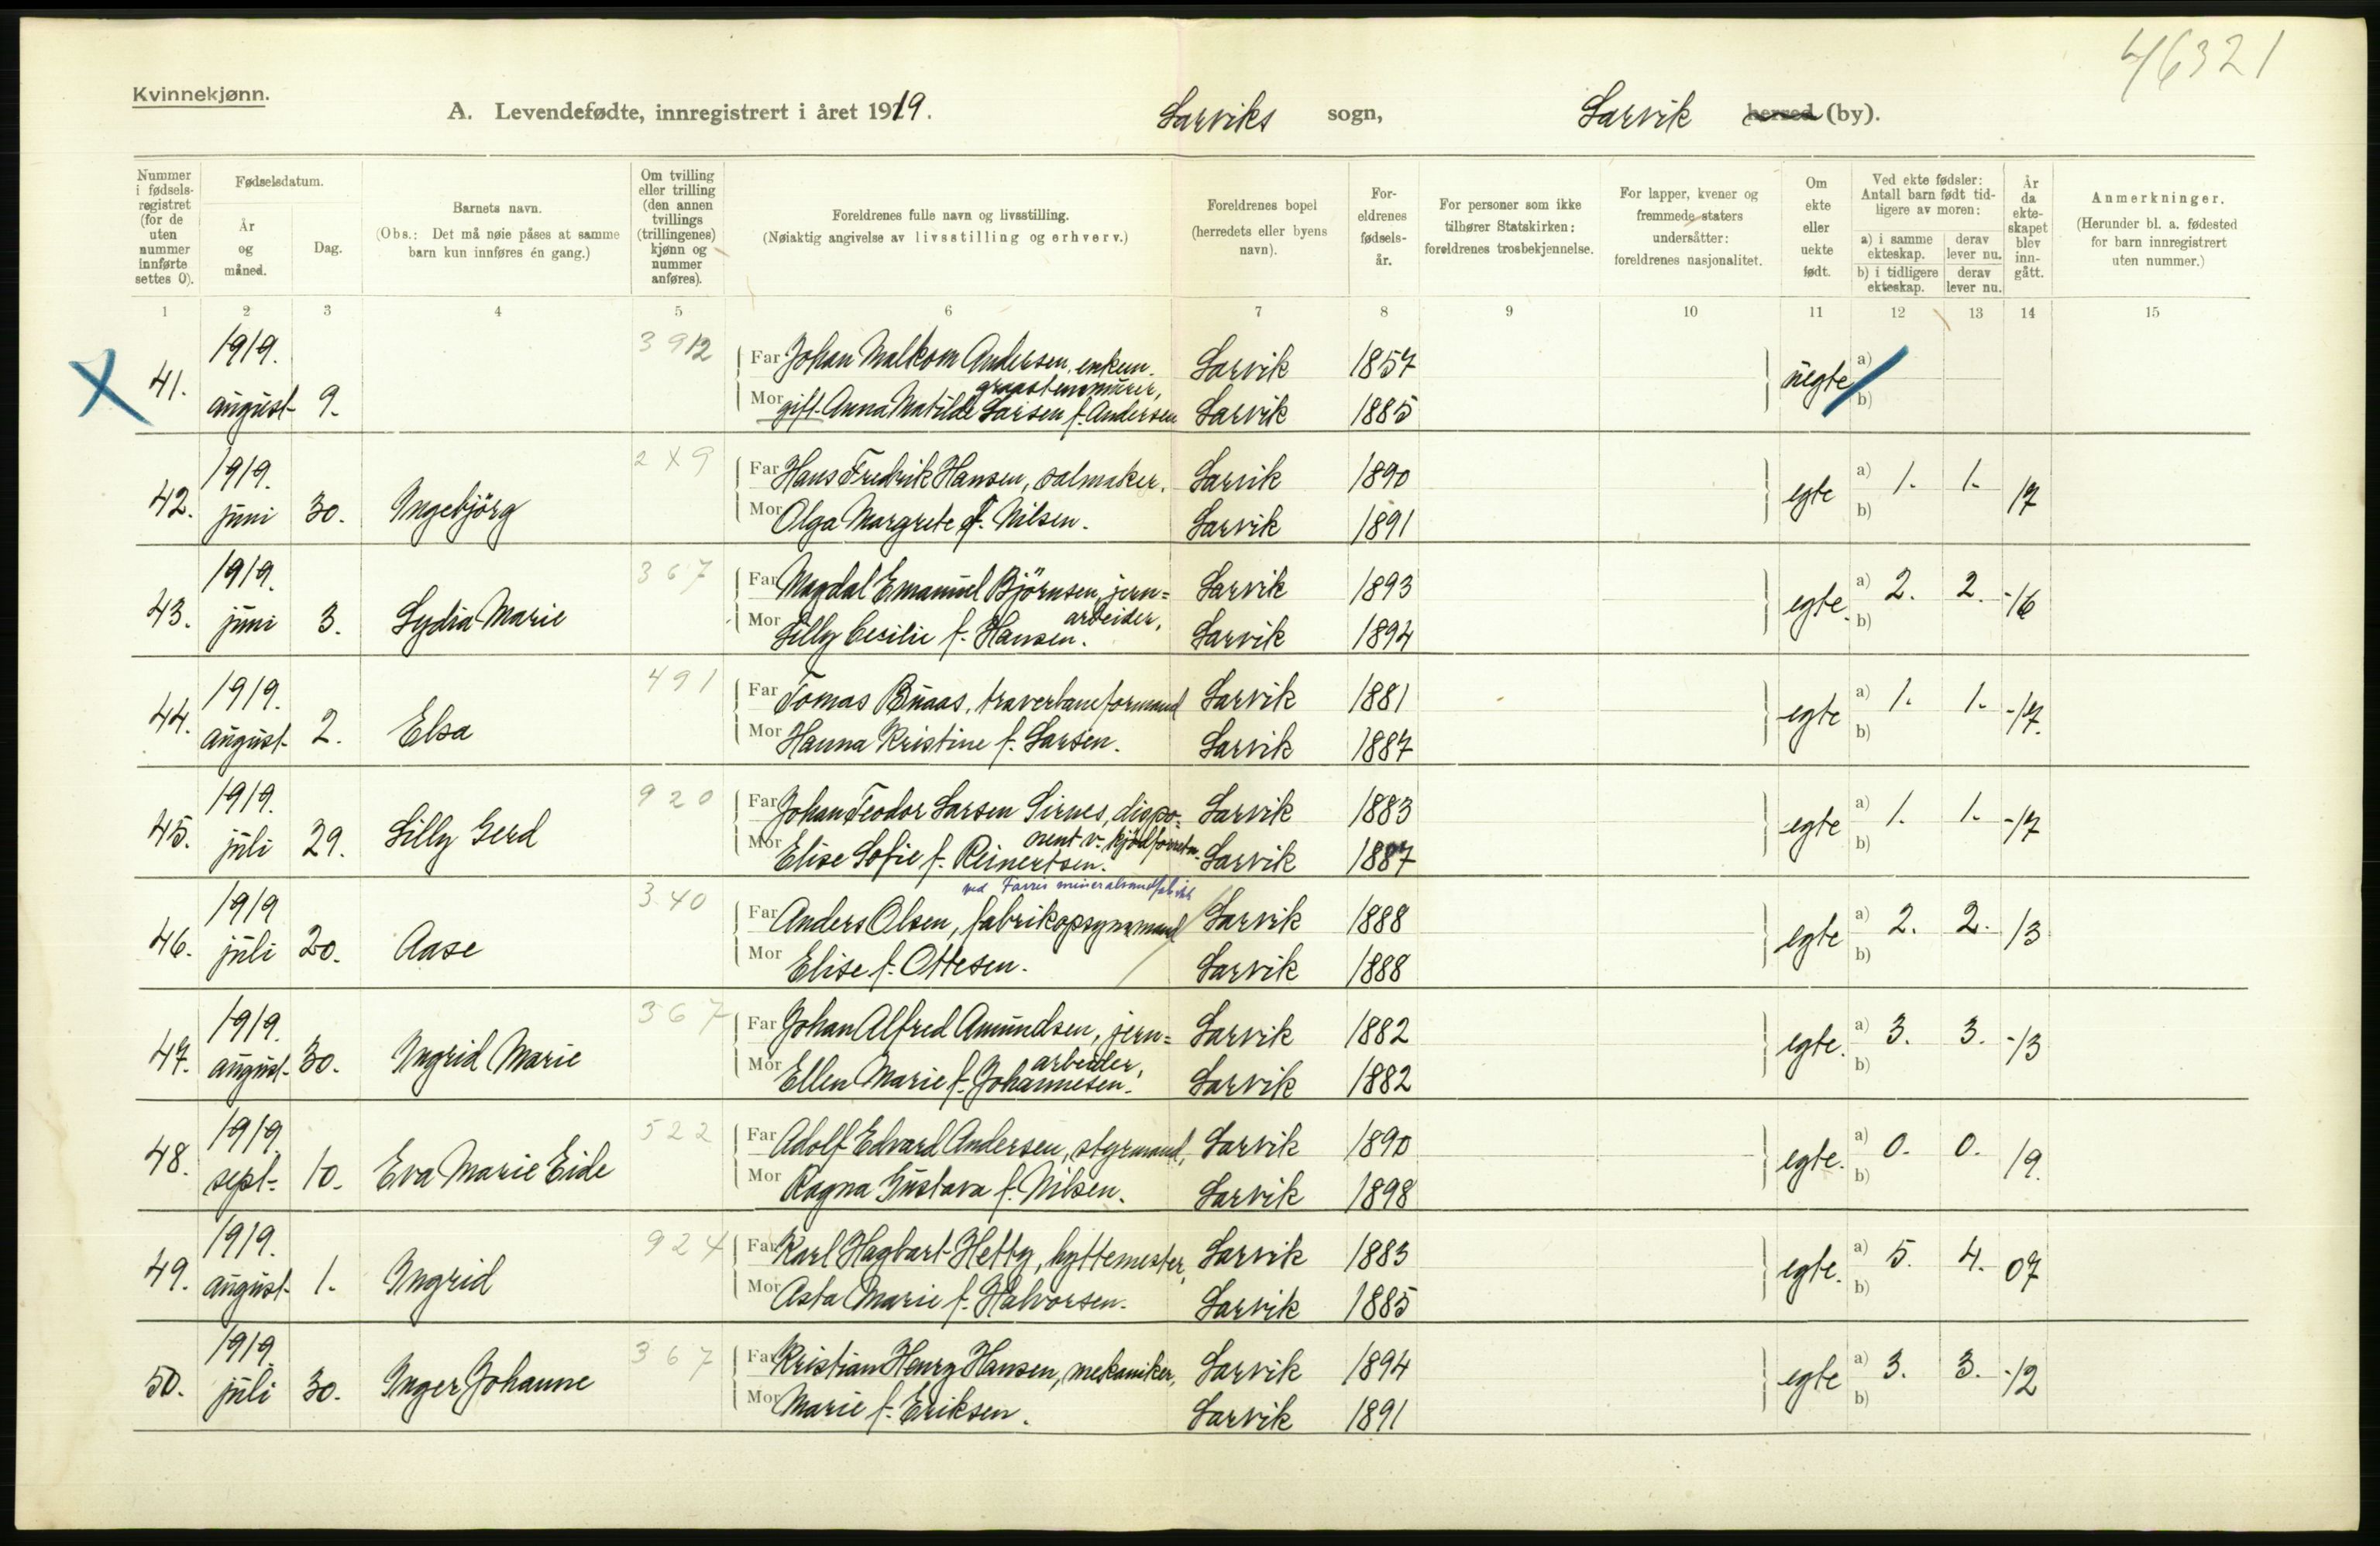 46321
Kvinnekjønn.
A. Levendefødte, innregistrert i året 1919. Larviks sogn, Larvik herred (by).
Nummer i fødsels-registret (for de uten nummer innførte settes 0).
Fødselsdatum.
År og måned.
Dag.
Barnets navn.
(Obs.: Det må nøie påses at samme barn kun innføres én gang.)
Om tvilling eller trilling (den annen tvillings (trillingenes) kjønn og nummer anføres).
Foreldrenes fulle navn og livsstilling.
(Nøiaktig angivelse av livsstilling og erhverv.)
Foreldrenes bopel (herredets eller byens navn).
For-eldrenes fødsels-år.
For personer som ikke tilhører Statskirken: foreldrenes trosbekjennelse.
For lapper, kvener og fremmede staters undersåtter: foreldrenes nasjonalitet.
Om ekte eller uekte født.
Ved ekte fødsler: Antall barn født tid-ligere av moren:
a) i samme ekteskap. derav lever nu.
b) i tidligere ekteskap. derav lever nu.
År da ekte-skapet blev inn-gått.
Anmerkninger.
(Herunder bl. a. fødested for barn innregistrert uten nummer.)
1 2 3 4 5 6 7 8 9 10 11 12 13 14 15
X 41. 1919. august 9. 3912 Far Johan Malkom Andersen, enkem. Larvik 1857 uegte a)
graastensmurer,
Mor gift Anna Matilde Larsen f. Andersen Larvik 1885 b)
42. 1919. juni 30. Ingebjörg 2 X 9 Far Hans Fredrik Hansen, salmaker. Larvik 1890 egte a) 1. 1. 17
Mor Olga Margrete f. Nilsen. Larvik 1891 b)
43. 1919. juni 3. Lydia Marie 367 Far Magdal Emanuel Björnsen, jern= Larvik 1893 egte. a) 2. 2. -16
arbeider,
Mor Lilly Cecilie f. Hansen. Larvik 1894 b)
44. 1919. august 2. Elsa 491 Far Tomas Buaas, traverbaneformand Larvik 1881 egte a) 1. 1. -17.
Mor Hanna Kristine f. Larsen. Larvik 1887 b)
45. 1919. juli 29. Lilly Gerd 920 Far Johan Teodor Larsen Sirnes, dispo= Larvik 1883 egte a) 1. 1. -17
nent v. kjödforretn.
Mor Elise Sofie f. Reinertsen. Larvik 1887 b)
ved Farris mineralvandfabrik
46. 1919 juli 20. Aase 340 Far Anders Olsen, fabrikopsynsmand Larvik 1888 egte a) 2. 2. 13
Mor Elise f. Ottesen. Larvik 1888 b)
47. 1919. august 30. Ingrid Marie 367 Far Johan Alfred Amundsen, jern= Larvik 1882 egte. a) 3. 3. -13
arbeider,
Mor Ellen Marie f. Johannesen. Larvik 1882 b)
48. 1919. sept. 10. Eva Marie Eide 522 Far Adolf Edvard Andersen, styrmand, Larvik 1890 egte. a) 0. 0. 19.
Mor Ragna Gustava f. Nilsen. Larvik 1898 b)
49. 1919. august 1. Ingrid 924 Far Karl Hagbart Hetty, hyttemester, Larvik 1883 egte. a) 5. 4. 07
Mor Asta Marie f. Halvorsen. Larvik 1885 b)
50. 1919 juli 30. Inger Johanne 367 Far Kristian Henry Hansen, mekaniker, Larvik 1894 egte a) 3. 3. -12
Mor Marie f. Eriksen. Larvik 1891 b)